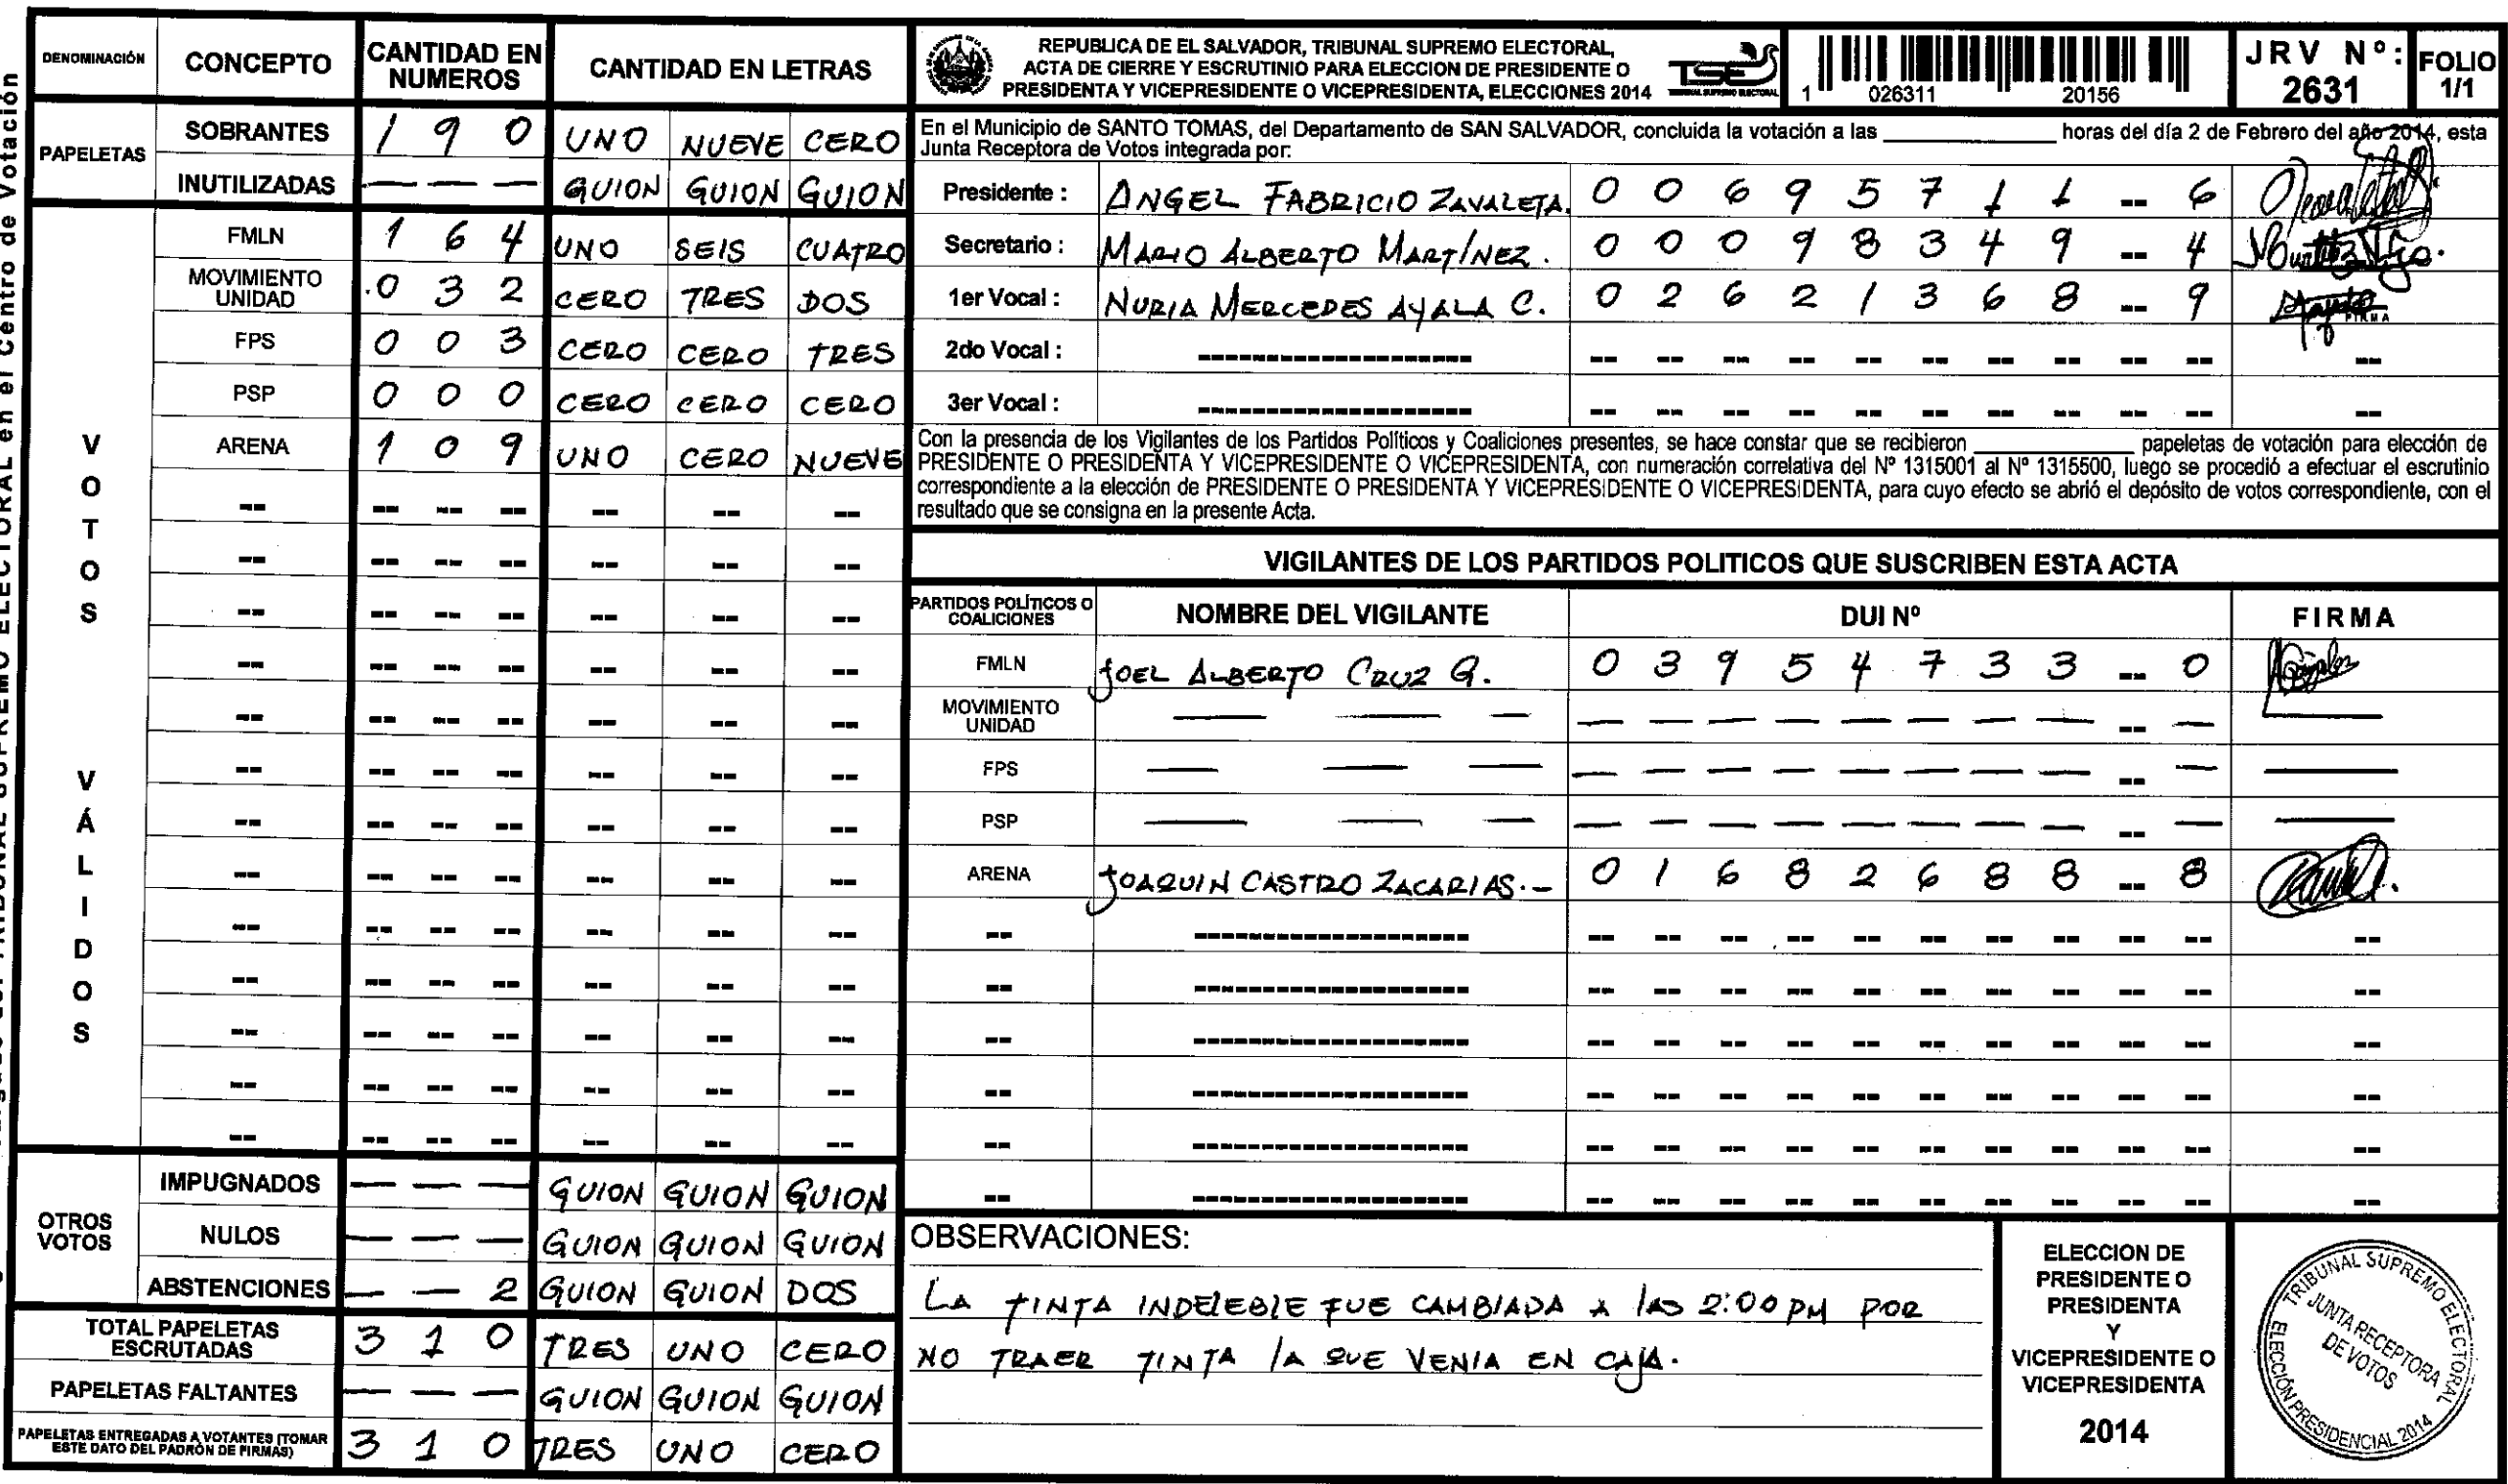 DENOMINACIÓN CONCEPTO CANTIDAD EN NUMEROS CANTIDAD EN LETRAS
PAPELETAS
SOBRANTES 1 9 0 UNO NUEVE CERO
INUTILIZADAS — — — GUION GUION GUION
VOTOS VÁLIDOS
FMLN 1 6 4 UNO SEIS CUATRO
MOVIMIENTO UNIDAD 0 3 2 CERO TRES DOS
FPS 0 0 3 CERO CERO TRES
PSP 0 0 0 CERO CERO CERO
ARENA 1 0 9 UNO CERO NUEVE
-- -- -- -- -- -- --
-- -- -- -- -- -- --
-- -- -- -- -- -- --
-- -- -- -- -- -- --
-- -- -- -- -- -- --
-- -- -- -- -- -- --
-- -- -- -- -- -- --
-- -- -- -- -- -- --
-- -- -- -- -- -- --
-- -- -- -- -- -- --
-- -- -- -- -- -- --
-- -- -- -- -- -- --
-- -- -- -- -- -- --
OTROS VOTOS
IMPUGNADOS — — — GUION GUION GUION
NULOS — — — GUION GUION GUION
ABSTENCIONES — — 2 GUION GUION DOS
TOTAL PAPELETAS ESCRUTADAS 3 1 0 TRES UNO CERO
PAPELETAS FALTANTES — — — GUION GUION GUION
PAPELETAS ENTREGADAS A VOTANTES (TOMAR ESTE DATO DEL PADRÓN DE FIRMAS) 3 1 0 TRES UNO CERO
REPUBLICA DE EL SALVADOR, TRIBUNAL SUPREMO ELECTORAL,
ACTA DE CIERRE Y ESCRUTINIO PARA ELECCION DE PRESIDENTE O
PRESIDENTA Y VICEPRESIDENTE O VICEPRESIDENTA, ELECCIONES 2014
TSE
TRIBUNAL SUPREMO ELECTORAL
1 026311 20156
JRV Nº: 2631
FOLIO 1/1
En el Municipio de SANTO TOMAS, del Departamento de SAN SALVADOR, concluida la votación a las ________ horas del día 2 de Febrero del año 2014, esta
Junta Receptora de Votos integrada por:
Presidente : ANGEL FABRICIO ZAVALETA. 0 0 6 9 5 7 1 1 -- 6
Secretario : MARIO ALBERTO MARTÍNEZ. 0 0 0 9 8 3 4 9 -- 4
1er Vocal : NURIA MERCEDES AYALA C. 0 2 6 2 1 3 6 8 -- 9 FIRMA
2do Vocal : ------------------- -- -- -- -- -- -- -- -- -- -- --
3er Vocal : ------------------- -- -- -- -- -- -- -- -- -- -- --
Con la presencia de los Vigilantes de los Partidos Políticos y Coaliciones presentes, se hace constar que se recibieron ________ papeletas de votación para elección de
PRESIDENTE O PRESIDENTA Y VICEPRESIDENTE O VICEPRESIDENTA, con numeración correlativa del Nº 1315001 al Nº 1315500, luego se procedió a efectuar el escrutinio
correspondiente a la elección de PRESIDENTE O PRESIDENTA Y VICEPRESIDENTE O VICEPRESIDENTA, para cuyo efecto se abrió el depósito de votos correspondiente, con el
resultado que se consigna en la presente Acta.
VIGILANTES DE LOS PARTIDOS POLITICOS QUE SUSCRIBEN ESTA ACTA
PARTIDOS POLÍTICOS O COALICIONES NOMBRE DEL VIGILANTE DUI Nº FIRMA
FMLN JOEL ALBERTO CRUZ G. 0 3 9 5 4 7 3 3 -- 0
MOVIMIENTO UNIDAD — — — — — — — — — — — -- — —
FPS — — — — — — — — — — — -- — —
PSP — — — — — — — — — — — -- — —
ARENA JOAQUIN CASTRO ZACARIAS.- 0 1 6 8 2 6 8 8 -- 8
-- ------------------- -- -- -- -- -- -- -- -- -- -- --
-- ------------------- -- -- -- -- -- -- -- -- -- -- --
-- ------------------- -- -- -- -- -- -- -- -- -- -- --
-- ------------------- -- -- -- -- -- -- -- -- -- -- --
-- ------------------- -- -- -- -- -- -- -- -- -- -- --
-- ------------------- -- -- -- -- -- -- -- -- -- -- --
OBSERVACIONES:
LA TINTA INDELEBLE FUE CAMBIADA A lAS 2:00 PM POR
NO TRAER TINTA lA QUE VENIA EN CAJA.
ELECCION DE
PRESIDENTE O
PRESIDENTA
Y
VICEPRESIDENTE O
VICEPRESIDENTA
2014
TRIBUNAL SUPREMO ELECTORAL
JUNTA RECEPTORA
DE VOTOS
ELECCIÓN PRESIDENCIAL 2014
TRIBUNAL SUPREMO ELECTORAL en el Centro de Votación